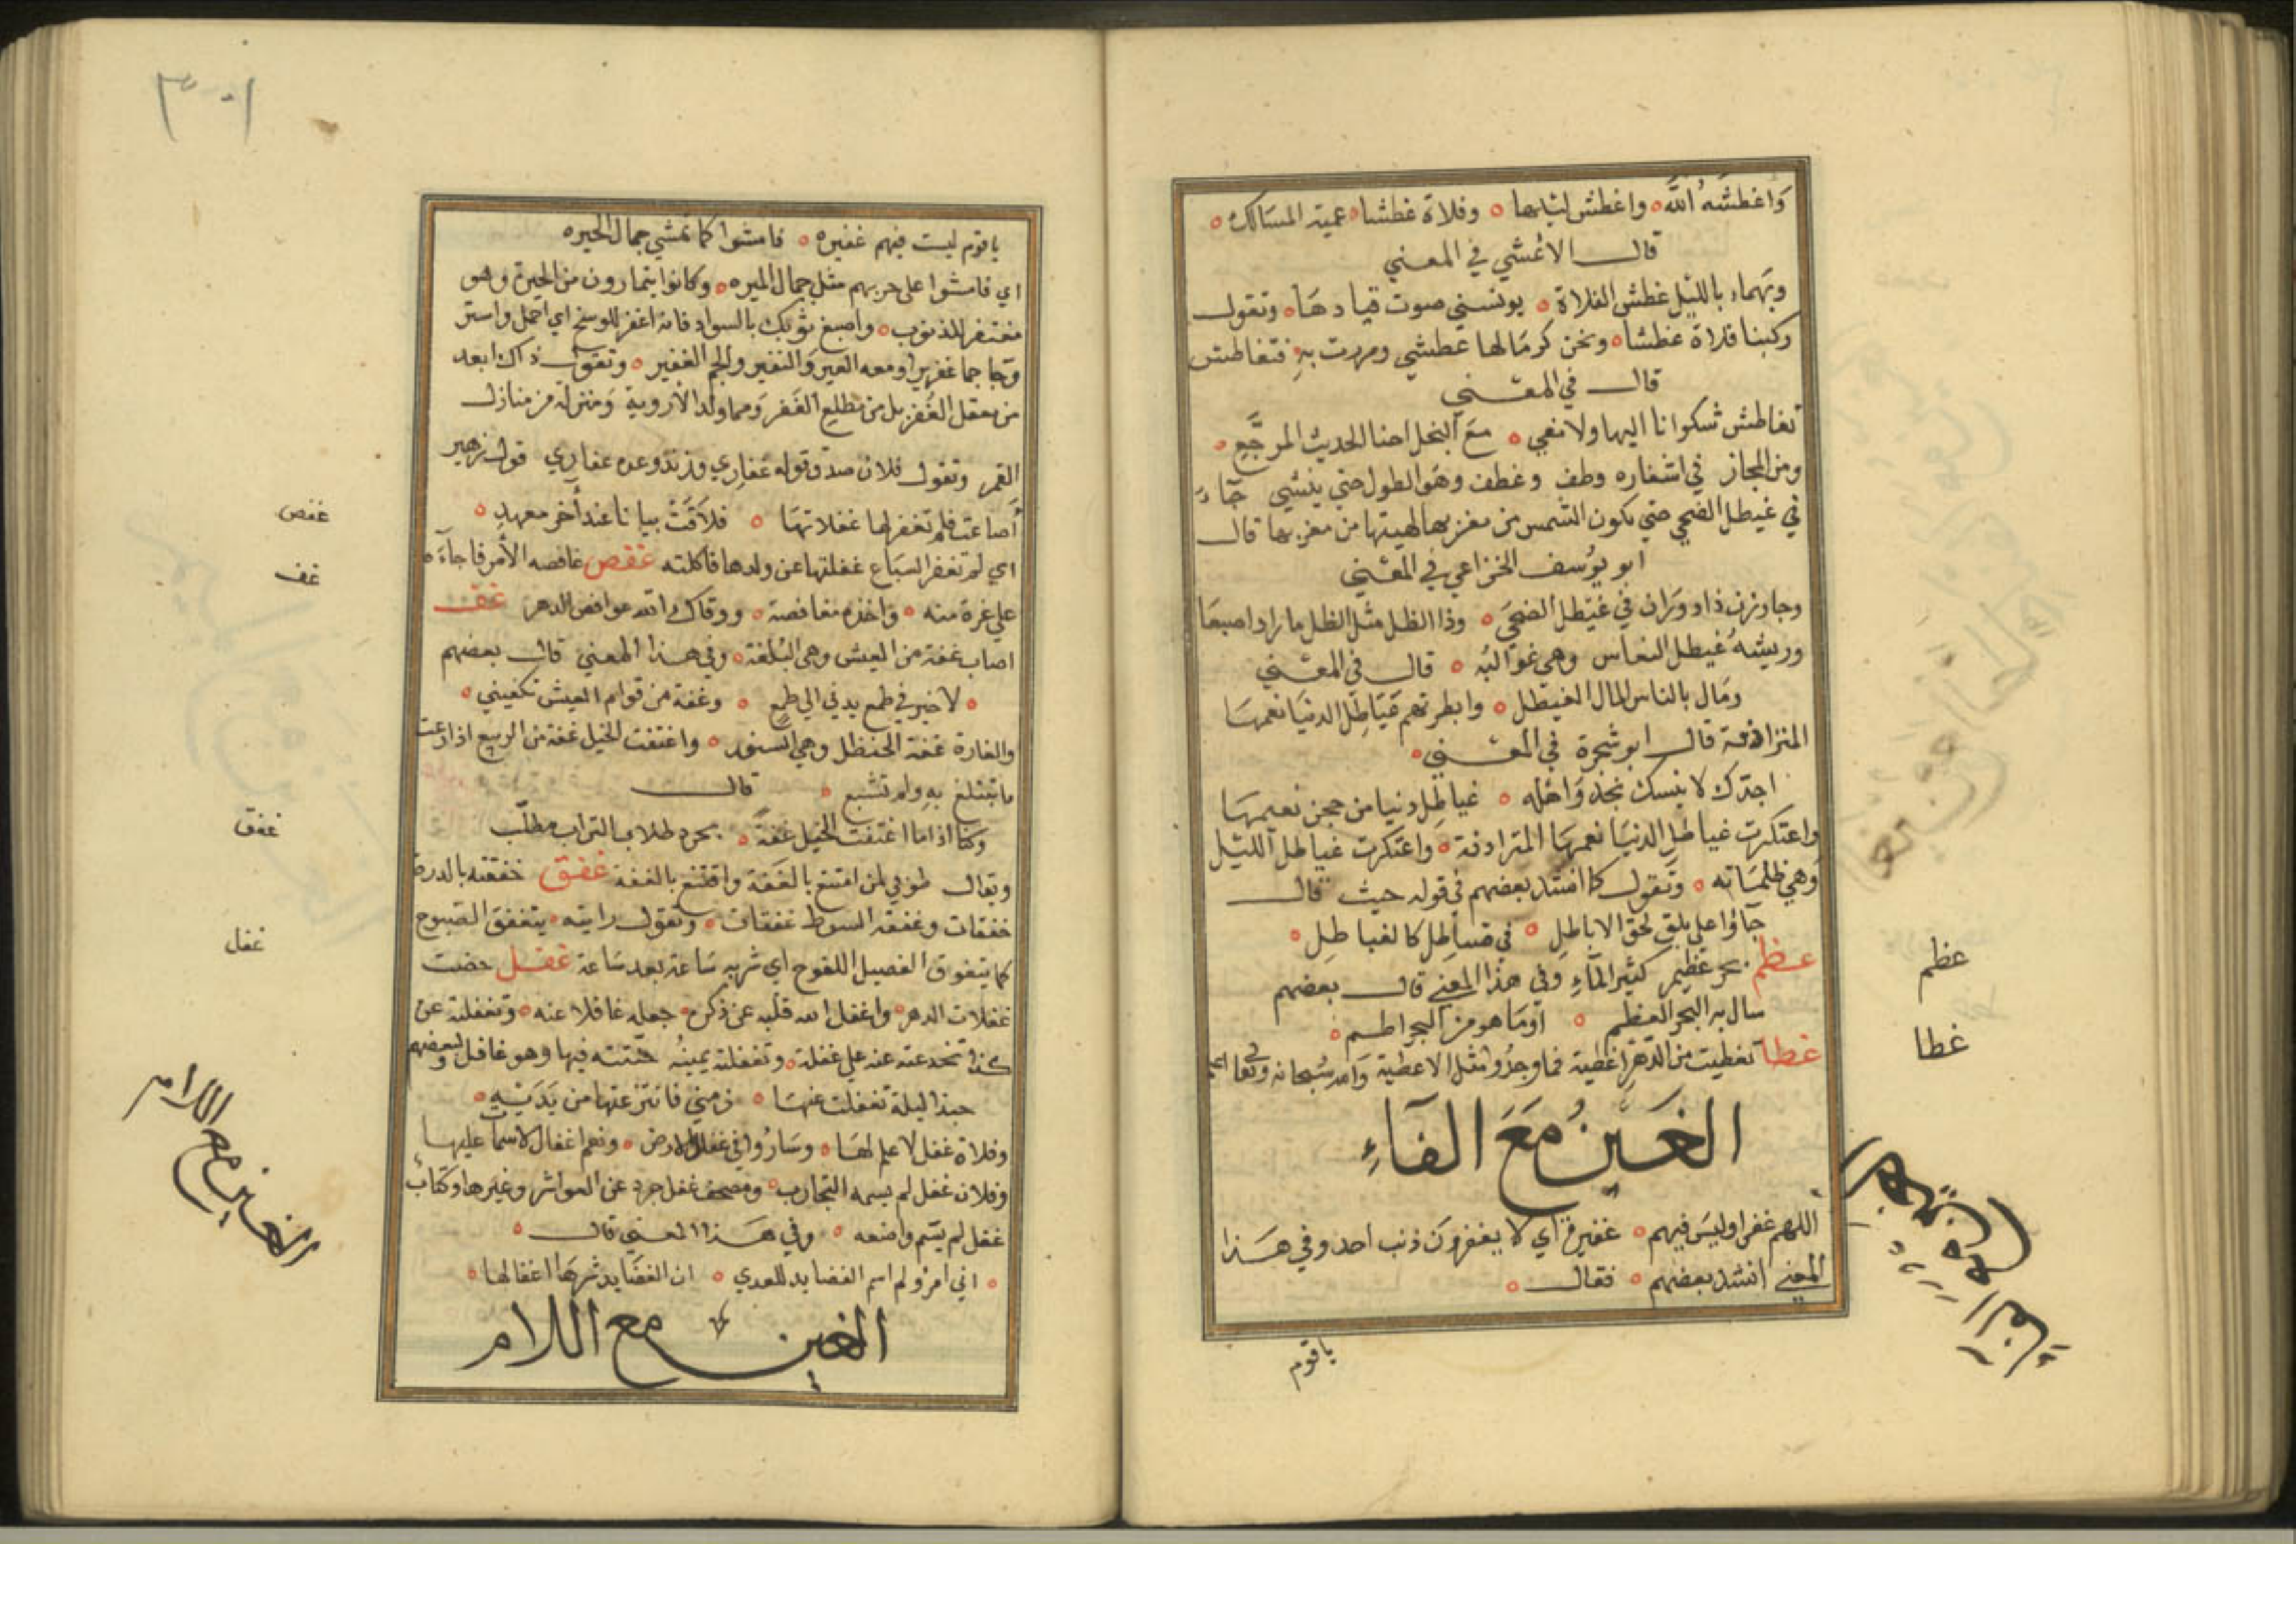 وَاغطشَهُ اللّه واغطش ليلها وفلاة غطشا عمية المسَالك
قال الاعْشي في المعني
وبَهماء بالليل غطش الفلاة يونسني صوت قيادهَا وتقول
ركبنا فلاة غطشا ونحن كرمَالها غطشي ومررت بهِ فتغاطش
قال في المعني
تغاطش شكوانا اليها ولا تعي مع البخل احنا الحديث المرجَّع
ومن المجاز في اشفاره وطف وغطف وهو الطول حتي ينثني جَاءَ
في غيطل الضحي حتي يكون الشمس من مغربها لهيتها من مغربها قال
ابو يوسف الخزاعي في المعني
وجاوزن ذا دوران في غيْطل الضحَي وذا الظل مثل الظل ما زاد اصبعَا
وريشهُ غيطل النعاس وهي غوالبُه قال في المعني
ومَال بالناس المال الغيطل وابطرتهم غيَاطِل الدنيَا نعمهَا
المترادفة قال ابو شجرة في المعني
اجدّك لا ينسك نجد وَاهله غياطِل دنيا من جحن نعيمهَا
واعتكرت غياطل الدنيَا نعمهَا المترادفة وَاعتكرت غياطل الليْل
وَهي ظلمَاته وتَقول كما انشد بعضهم في قوله حيث قال
جَاؤا علي بلق لحق الاباطِل في قسَاطِل كالغياطِل
عظم بحر عظيم كثير المآءِ وفي هذا المعني قال بعضهم
سال به البحر العظم اومَا هو من البحر اطم
غطا تغطيت من الدّهر اغطية فما وجدُوا مثل الاعطية وَاللّه سُبحانه وتعَا اعلم
الغَينُ مَعَ الفَآءِ
اللهم غفرا وليسَ فيهم غفيرة اي لا يغفروُنَ ذنب احد وفي هَذا
المعني انشد بعضهم فقال
ياقوم
عظم
غطا
٣٠١
ياقوم ليست فيهم غفيره فامشوا كما تمشي جمال الحيره
اي فامشوا علي حربهم مثل جمال الميره وكانوا يتمارون من الحيرة وهو
مغتفر للذنوب واصبغ ثوبك بالسواد فانه اغفر للوسخ اي احمل واستر
وجَا جما غفيرا ومعه العير والنفير والجم الغفير وتقول ذاك ابعد
من معقل الغُفر بل من مطلع الغَفر وَهما ولد الاروية وَمنزلة من منازل
القمر وتقول فلان صدق قوله غفاري وزنده وعده عفاري قول زهير
أضاعت فلم تغفر لها غفلاتهَا فلاقَتْ بيانا عند آخر معهد
اي لم تغفر السبَاع غفلتها عن ولدها فاكلته غفص غافصه الأمر فاجآءَه
علي غرة منه واخذه مغافصة ووقاك اللّه غوافص الدهر غف
اصَاب غفة من العيش وهي البُلغة وفي هذا المعني قال بعضهم
لا خير في طمع يدني الي طبع وغفة من قوام العيش تكفيني
والفارة غفة الحنطل وهي السنور واغتفت الخيل غفة من الربيع اذا رعت
ما تبتلغ بهِ ولم تشبع قال
وكنا اذا ما اغتفت الخيل غفةً تجرد طلاب التراب مطلّب
ويقال طوبي لمن اقتنع بالغفة واقتنع بالغفة غفق خفقته بالدرة
خفقات وغفقه السوط غفقات وتقول رايته يتغفق الصبوح
كما يتفوق الفصيل اللقوح اي شربه سَاعة بعد سَاعة غفل خضت
غفلات الدهر واغفل اللّه قلبَه عن ذكره جعله غافلا عنه وتغفلته عن
كذا تخدعته عنه علي غفلة وتغفلته يمينُه حنثته فيها وهو غافل ولبعضهم
حبذا ليلة تغفلت عنهَا زمني فانتزعتها من يَديَيْهِ
وفلاة غفل لا علم لهَا وسَارُوا في غفل الارض ونعم اغفال لا سمات عليها
وفلان غفل لم يسمه التجارب ومصحف غفل جرد عن العواشر وغيرها وكتاب
غفل لم يسّم واضعه وفي هَذا المعني قال
اني امرؤ لم اسم القصايد للعدي ان القصَايد شرهَا اغفالها
الغين مع اللام
غفص
غف
غفق
غفل
الغين مع اللام